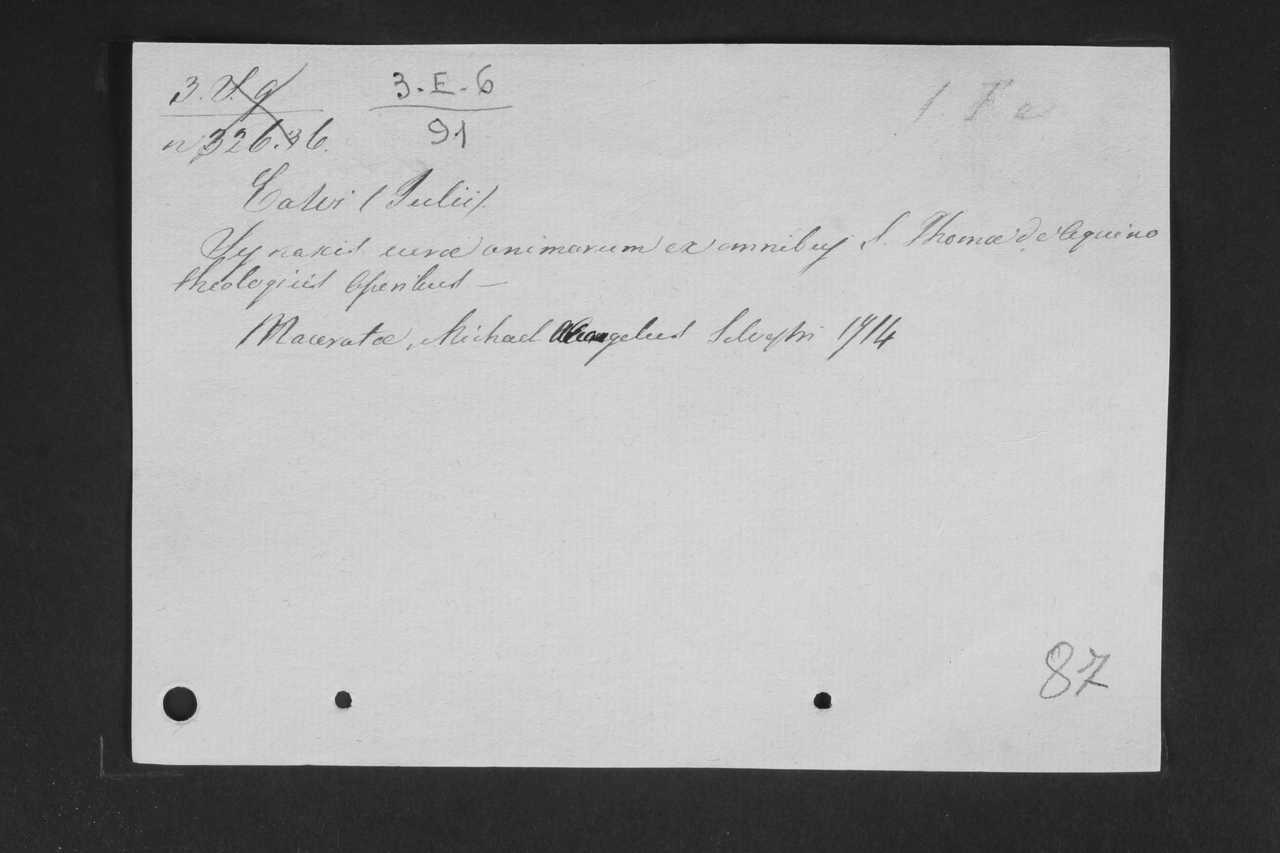 3. V. g 3-E-6
n 326.36. 91
Calvi (Julii)
Synaxis curæ animarum ex omnibus S. Thomæ de Aquino
theologicis Operibus —
Maceratæ, Michael Angelus Silvestri 1714
87